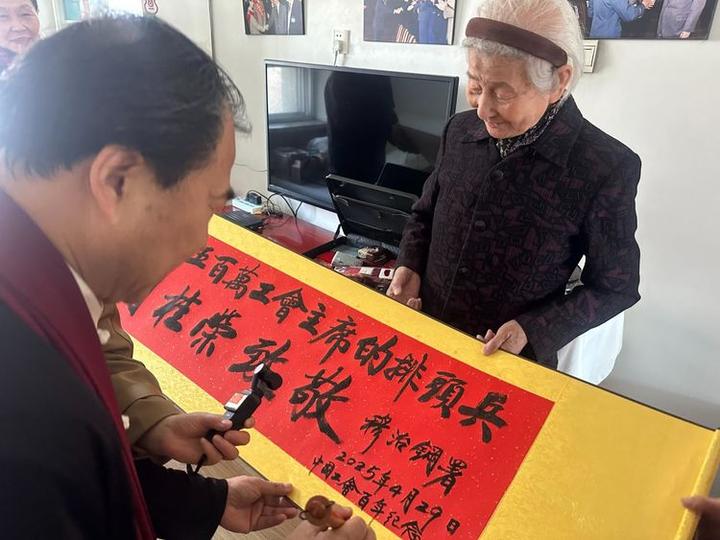 五百萬工會主席的排頭兵
桂榮致敬
穆治鋼署
2025年4月29日
中國工會百年纪念